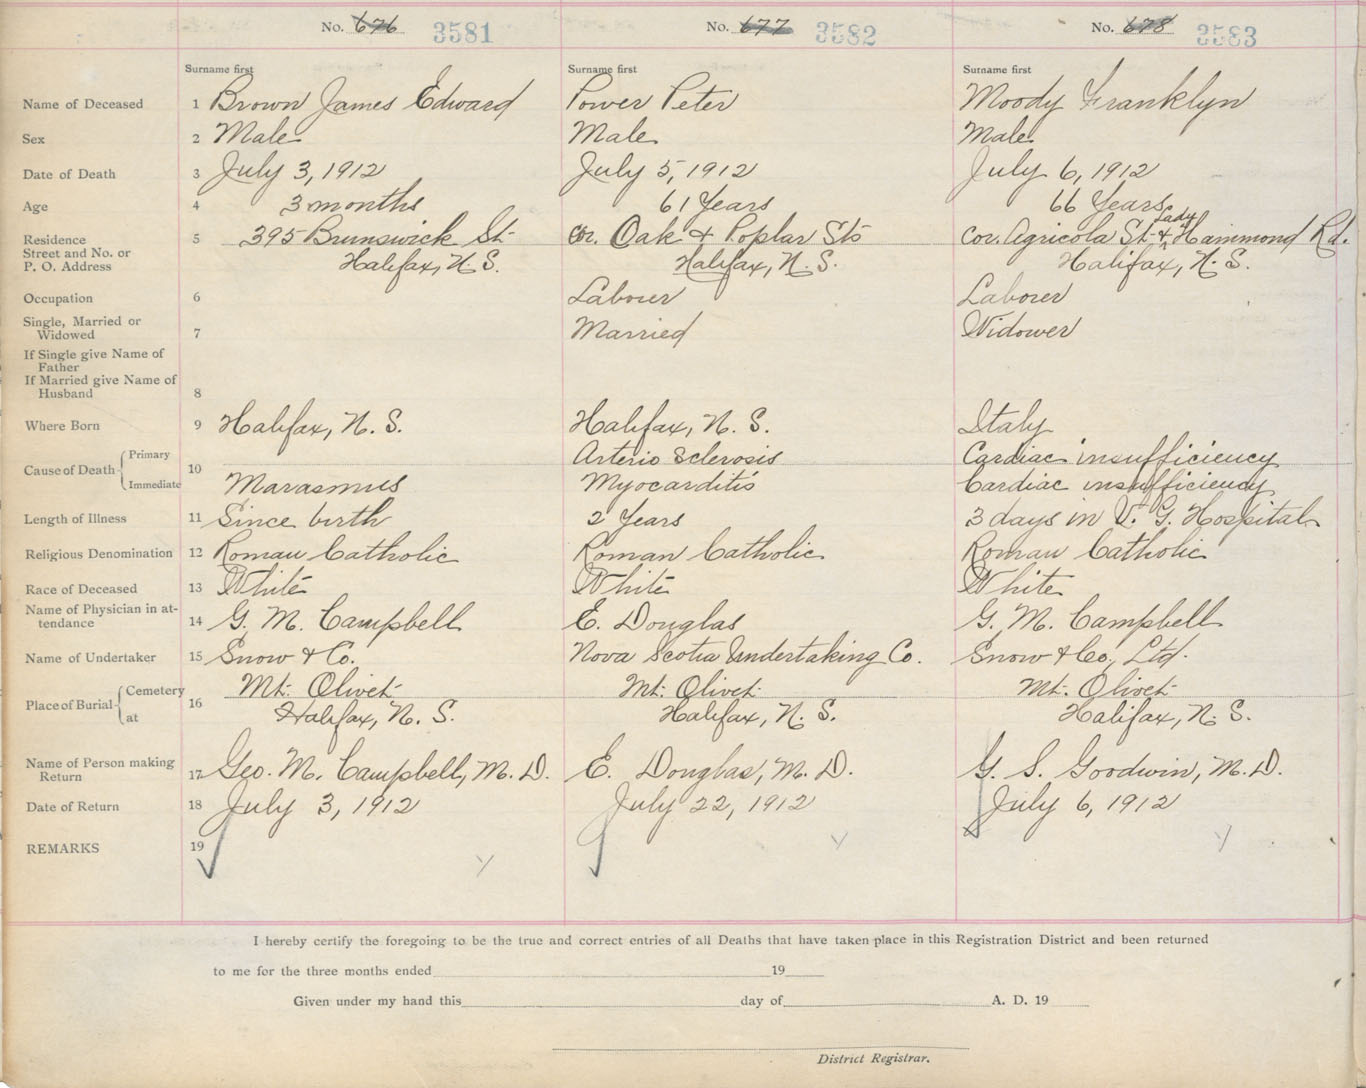 No. 676 3581 No. 677 3582 No. 678 3583
Surname first Surname first Surname first
Name of Deceased 1 Brown James Edward Power Peter Moody Franklyn
Sex 2 Male Male Male
Date of Death 3 July 3, 1912 July 5, 1912 July 6, 1912
Age 4 3 months 61 Years 66 Years
Residence 5 395 Brunswick St. cor. Oak & Poplar Sts cor. Agricola St. & Lady Hammond Rd.
Street and No. or
P. O. Address Halifax, N. S. Halifax, N. S. Halifax, N. S.
Occupation 6 Laborer Laborer
Single, Married or
Widowed 7 Married Widower
If Single give Name of
Father
If Married give Name of
Husband 8
Where Born 9 Halifax, N. S. Halifax, N. S. Italy
Cause of Death Primary 10 Arterio Sclerosis Cardiac insufficiency
Immediate Marasmus Myocarditis Cardiac insufficiency
Length of Illness 11 Since birth 2 Years 3 days in V. G. Hospital
Religious Denomination 12 Roman Catholic Roman Catholic Roman Catholic
Race of Deceased 13 White White White
Name of Physician in at-
tendance 14 G. M. Campbell E. Douglas G. M. Campbell
Name of Undertaker 15 Snow & Co. Nova Scotia Undertaking Co. Snow & Co. Ltd.
Place of Burial Cemetery 16 Mt. Olivet Mt. Olivet Mt. Olivet
at Halifax, N. S. Halifax, N. S. Halifax, N. S.
Name of Person making
Return 17 Geo. M. Campbell, M. D. E. Douglas, M. D. G. S. Goodwin, M. D.
Date of Return 18 July 3, 1912 July 22, 1912 July 6, 1912
REMARKS 19
I hereby certify the foregoing to be the true and correct entries of all Deaths that have taken place in this Registration District and been returned
to me for the three months ended 19
Given under my hand this day of A. D. 19
District Registrar.